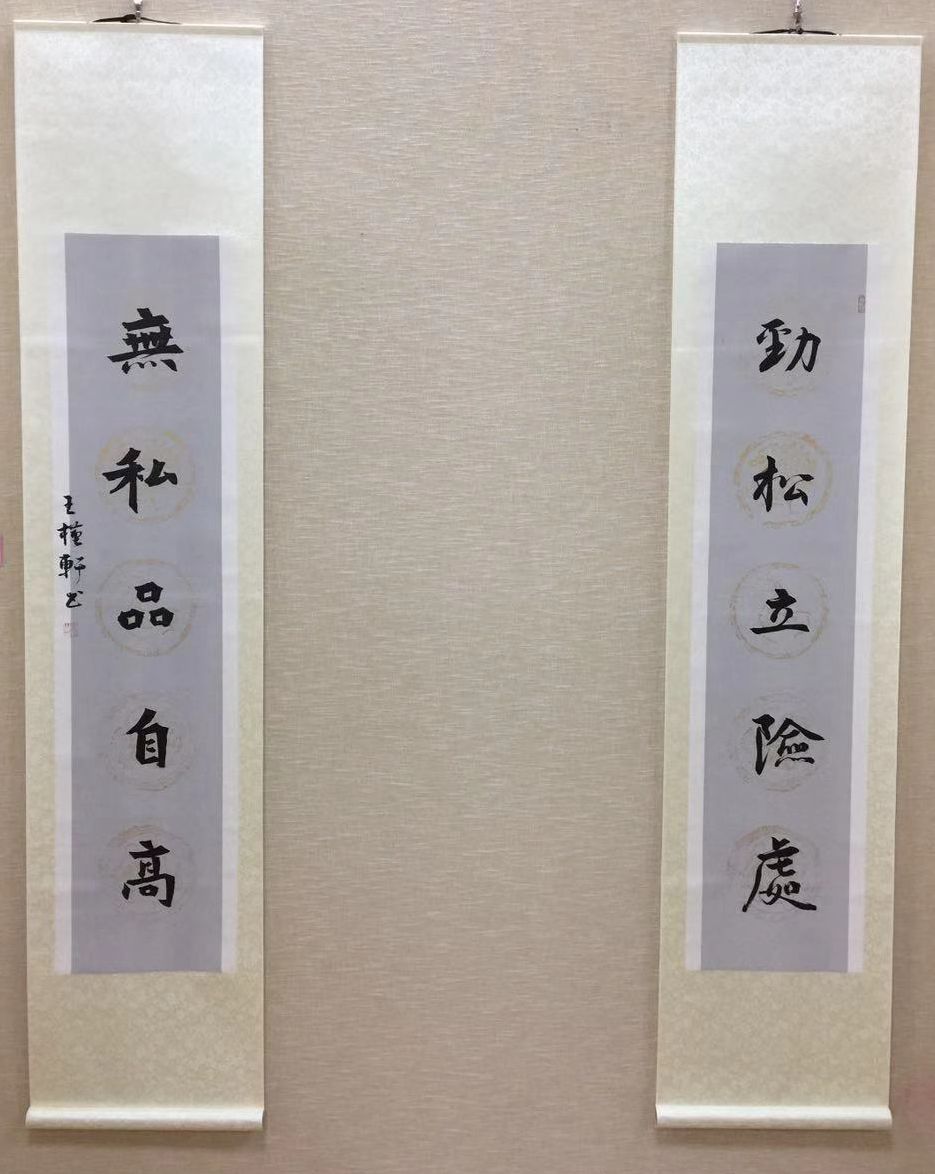 勁松立險處
無私品自高
王槿軒书